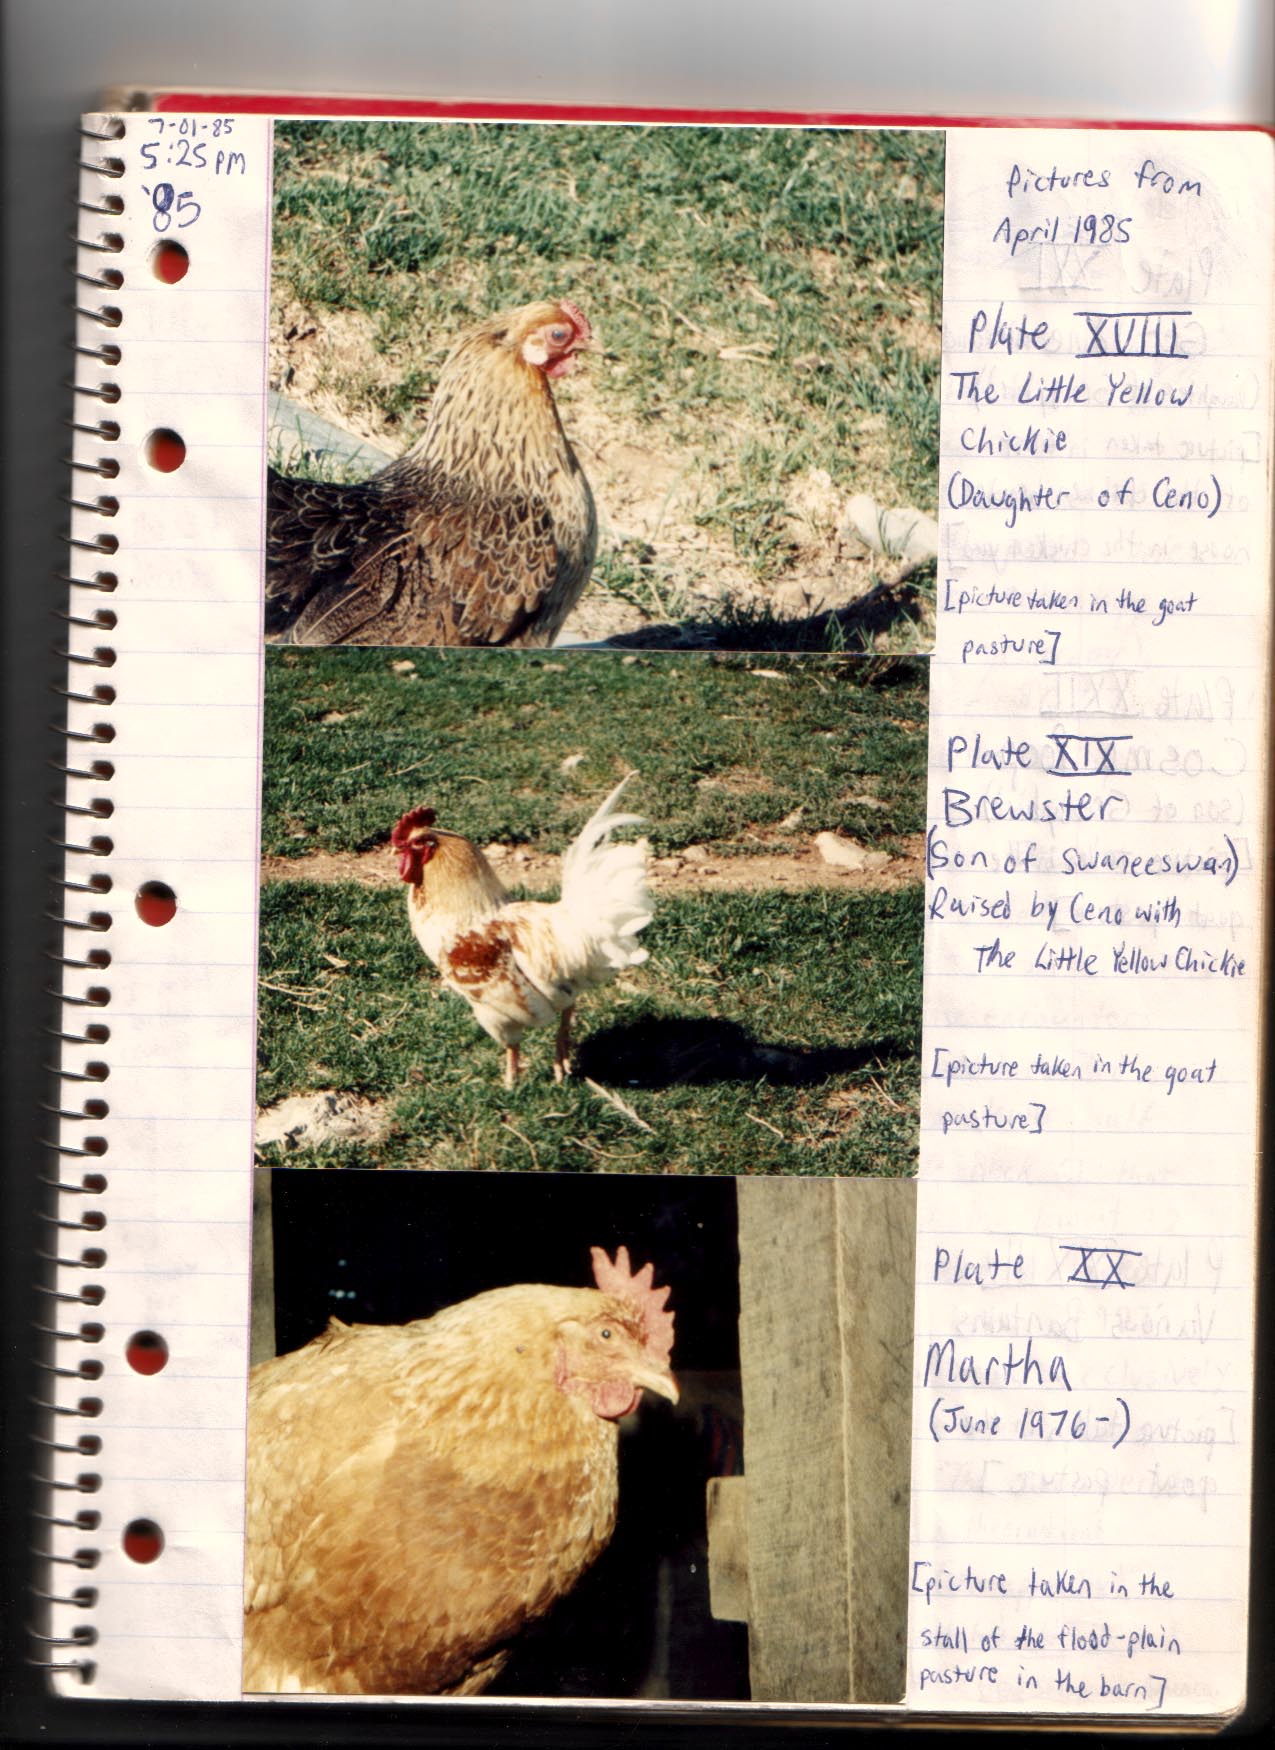 7-01-85
5:25 pm
'85
pictures from
April 1985
Plate XVIII
The Little Yellow
Chickie
(Daughter of Ceno)
[picture taken in the goat
pasture]
Plate XIX
Brewster
(Son of Swaneeswan)
Raised by Ceno with
The Little Yellow Chickie
[picture taken in the goat
pasture]
Plate XX
Martha
(June 1976-)
[picture taken in the
stall of the flood-plain
pasture in the barn]